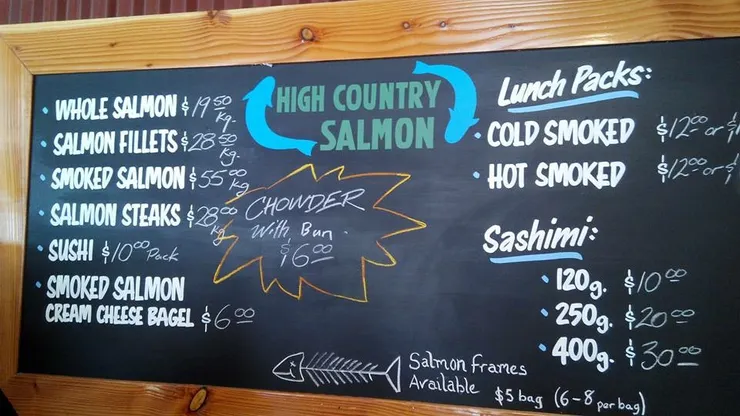 HIGH COUNTRY
SALMON
WHOLE SALMON $19.50 Kg.
SALMON FILLETS $28.50 Kg.
SMOKED SALMON $55.00 Kg
SALMON STEAKS $28.00 Kg
SUSHI $10.00 Pack
SMOKED SALMON
CREAM CHEESE BAGEL $6.00
CHOWDER
With Bun.
$6.00
Lunch Packs:
COLD SMOKED $12.00 or
HOT SMOKED $12.00 or
Sashimi:
120g. $10.00
250g. $20.00
400g. $30.00
Salmon frames
Available $5 bag (6-8 per bag)